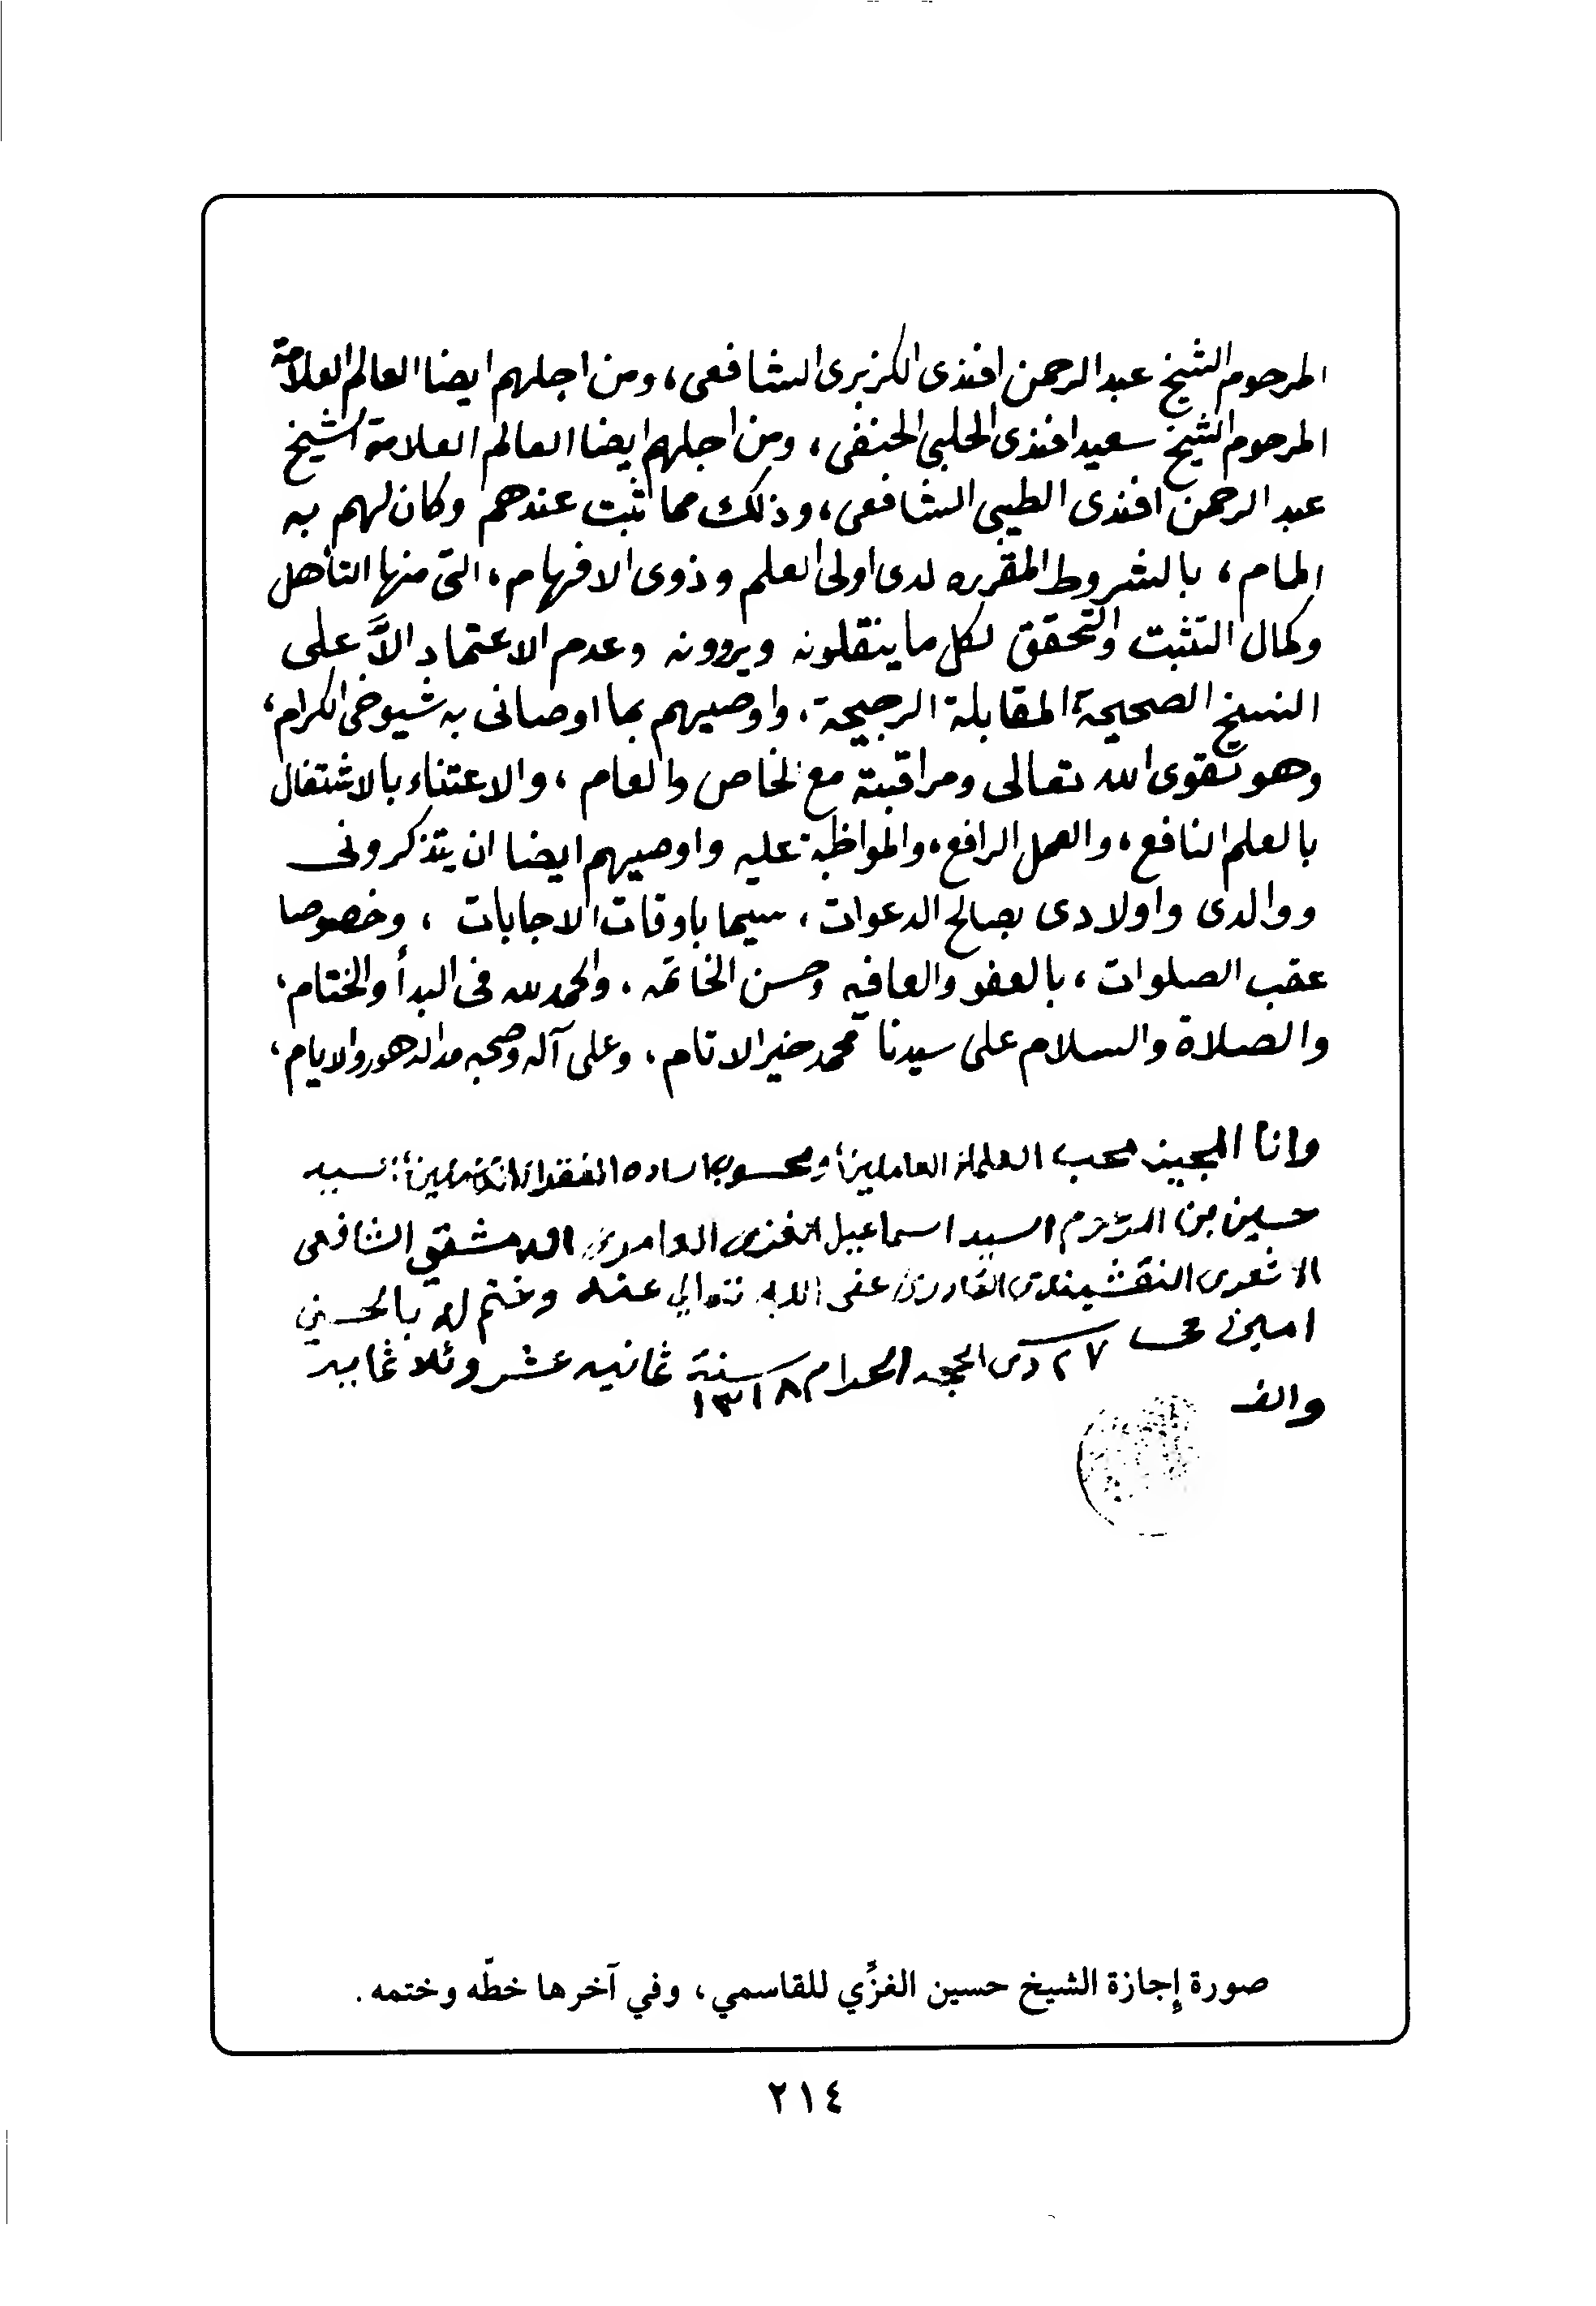 المرحوم الشيخ عبد الرحمن افندى الكزبرى الشافعى، ومن اجلهم ايضا العالم العلامة
المرحوم الشيخ سعيد افندى الحلبي الحنفى، ومن اجلهم ايضا العالم العلامة الشيخ
عبد الرحمن افندى الطيبى الشافعى، وذلك مما ثبت عندهم وكان لهم به
المام، بالشروط المقرره لدى اولى العلم وذوى الافهام، التى منها التأهل
وكمال التثبت والتحقق لكل ما ينقلونه ويروونه وعدم الاعتماد الاَّ على
النسخ الصحيحة المقابلة الرجيحة، واوصيهم بما اوصانى به شيوخى الكرام،
وهو تقوى الله تعالى ومراقبته مع الخاص والعام، والاعتناء بالاشتغال
بالعلم النافع، والعمل الرافع، والمواظبة عليه واوصيهم ايضا ان يتذكرونى
ووالدى واولادى بصالح الدعوات، سيما باوقات الاجابات، وخصوصا
عقب الصلوات، بالعفو والعافيه وحسن الخاتمه، والحمد لله فى البدأ والختام،
والصلاة والسلام على سيدنا محمد خير الانام، وعلى آله وصحبه مدا الدهور والايام،
وانا المجيز محب العلماء العاملين ومحسوب الساده الفقراء الكاملين السيد
حسين بن المرحوم السيد اسماعيل الغزى العامرى الدمشقي الشافعى
الاشعرى النقشبندى القادرى عفى الله تعالي عنه وختم له بالحسنى
امين ٢٧ ذى الحجه الحرام سنة ١٣١٨ ثمانيه عشر وثلاثمايه
والف
صورة إجازة الشيخ حسين الغزِّي للقاسمي، وفي آخرها خطّه وختمه.
٢١٤